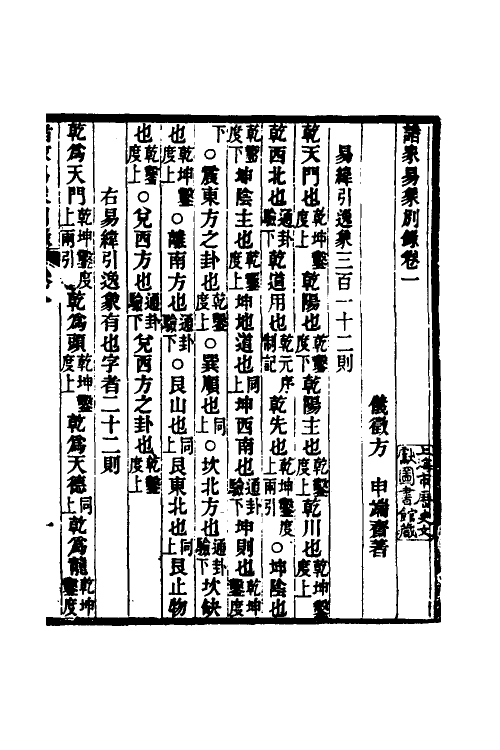 諸家易象別錄卷一
儀徵方 申端齋著
易緯引逸象三百一十二則
乾天門也乾坤鑿度上 乾陽也乾鑿度下 乾陽主也乾鑿度上 乾川也乾坤鑿度上
乾西北也通卦驗下 乾道用也乾元序制記 乾先也乾坤鑿度上兩引 ○坤陰也
乾鑿度下 坤陰主也乾鑿度上 坤地道也同上 坤西南也通卦驗下 坤則也乾坤鑿度
下 ○震東方之卦也乾鑿度上 ○巽順也同上 ○坎北方也通卦驗下 坎缺
也乾坤鑿度上 ○離南方也通卦驗下 ○艮山也同上 艮東北也同上 艮止物
也乾鑿度上 ○兌西方也通卦驗下 兌西方之卦也乾鑿度上
右易緯引逸象有也字者二十二則
乾爲天門乾坤鑿度上兩引 乾爲頭乾坤鑿度上 乾爲天德同上 乾爲龍乾坤鑿度
一
上海市歷史文獻圖書館藏